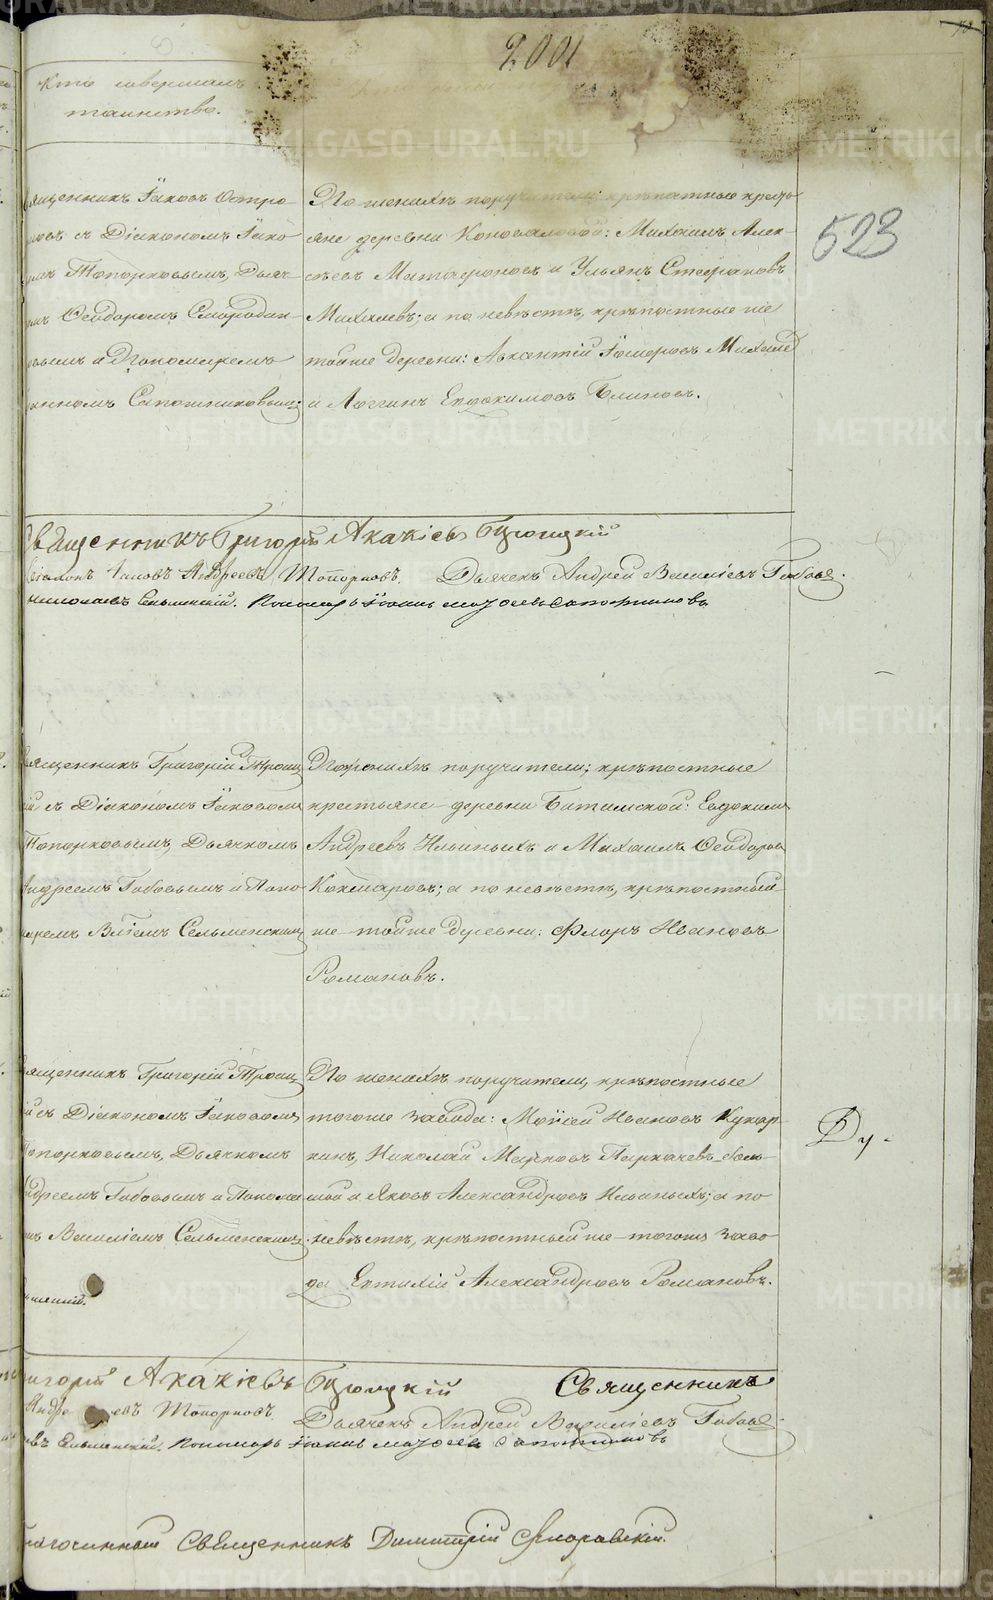 2001
Кто совершалъ
таинство.
523
Священникъ Іаковъ Остро-
съ Діакономъ Іако-
Топорковымъ, Дьяч-
Ѳеодоромъ Смородин-
и Пономаремъ
Сапожниковым;
По женихѣ поручители: крѣпостные кресть-
яне деревни Коноваловой: Михаилъ Алек-
сѣевъ Митафоновъ и Ульянъ Стефановъ
Михалевъ; а по невѣстѣ, крѣпостные же
тойже деревни: Авкентій Михалев
и Логгинъ Евдокимовъ Блиновъ.
Священникъ Григорій Акакіевъ Троицкій
Діаконъ Іаковъ Андреевъ Топорковъ. Дьячекъ Андрей Василіевъ Бабов.
Пономарь Іоаннъ Сапожниковъ
Священникъ Григорій Троиц
съ Діакономъ Іаковомъ
Топорковымъ, Дьячкомъ
Андреемъ Бабовымъ и Поно-
маремъ Сельменским
По женихѣ поручители; крѣпостные
крестьяне деревни Битимской: Евдоким
Андреевъ Ильиныхъ и Михаилъ Ѳеодоров
Кокшаровъ; а по невѣстѣ, крѣпостный
же тойже деревни: Флоръ Ивановъ
Романовъ.
Священникъ Григорій Троиц
съ Діакономъ Іаковомъ
Топорковымъ, Дьячкомъ
Андреемъ Бабовымъ и Понома
Василіемъ Сельменским
По женихѣ поручители, крѣпостные
тогоже завода: Мойсей Ивановъ Кукар-
кинъ, Николай Марковъ Пиркачевъ боль-
шой и Яковъ Александровъ Ильиныхъ; а по
невѣстѣ, крѣпостный же тогожъ заво-
да Евтихій Александровъ Романовъ.
Ду-
Григорій Акакіевъ Троицкій Священникъ
Топорковъ. Дьячекъ Андрей Василіевъ Бабов.
Пономарь Іоаннъ Сапожниковъ
Благочинный Священникъ Димитрій Флоровскій.
METRIKI.GASO-URAL.RU